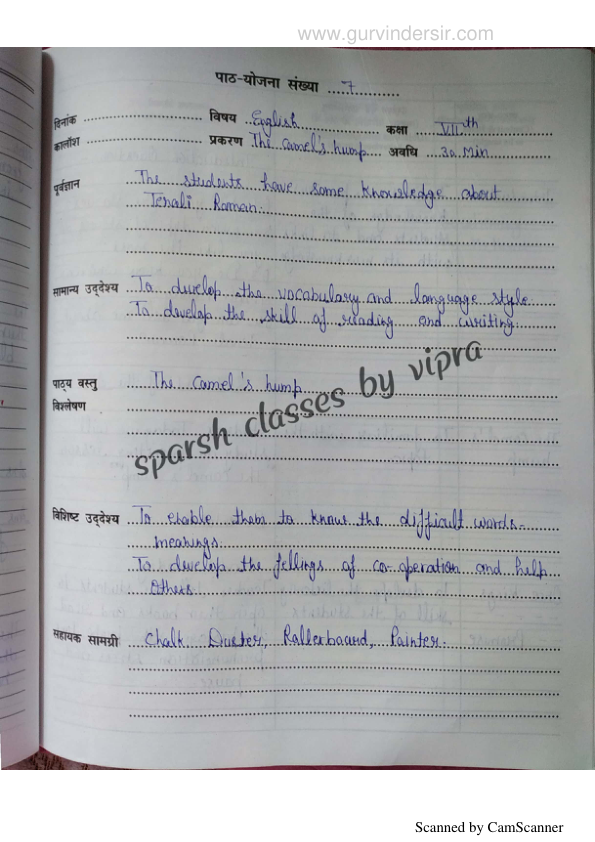 www.gurvindersir.com
पाठ-योजना संख्या ....7..........
दिनांक .............................. विषय ..English.................... कक्षा .....VIIth..............
कालॉश .............................. प्रकरण .The camel's hump..... अवधि ...30 Min..........
पूर्वज्ञान ...The students have some knowledge about
Tenali Raman.
सामान्य उद्देश्य ..To develop the vocabulary and language style
To develop the skill of reading and writing
पाठ्य वस्तु .....The camel's hump
विश्लेषण
sparsh classes by vipra
विशिष्ट उद्देश्य ..To enable them to know the difficult words-
meanings.
To develop the fellings of co-operation and help
Others
सहायक सामग्री ...Chalk Duster, Rollerboard, Pointer.
Scanned by CamScanner